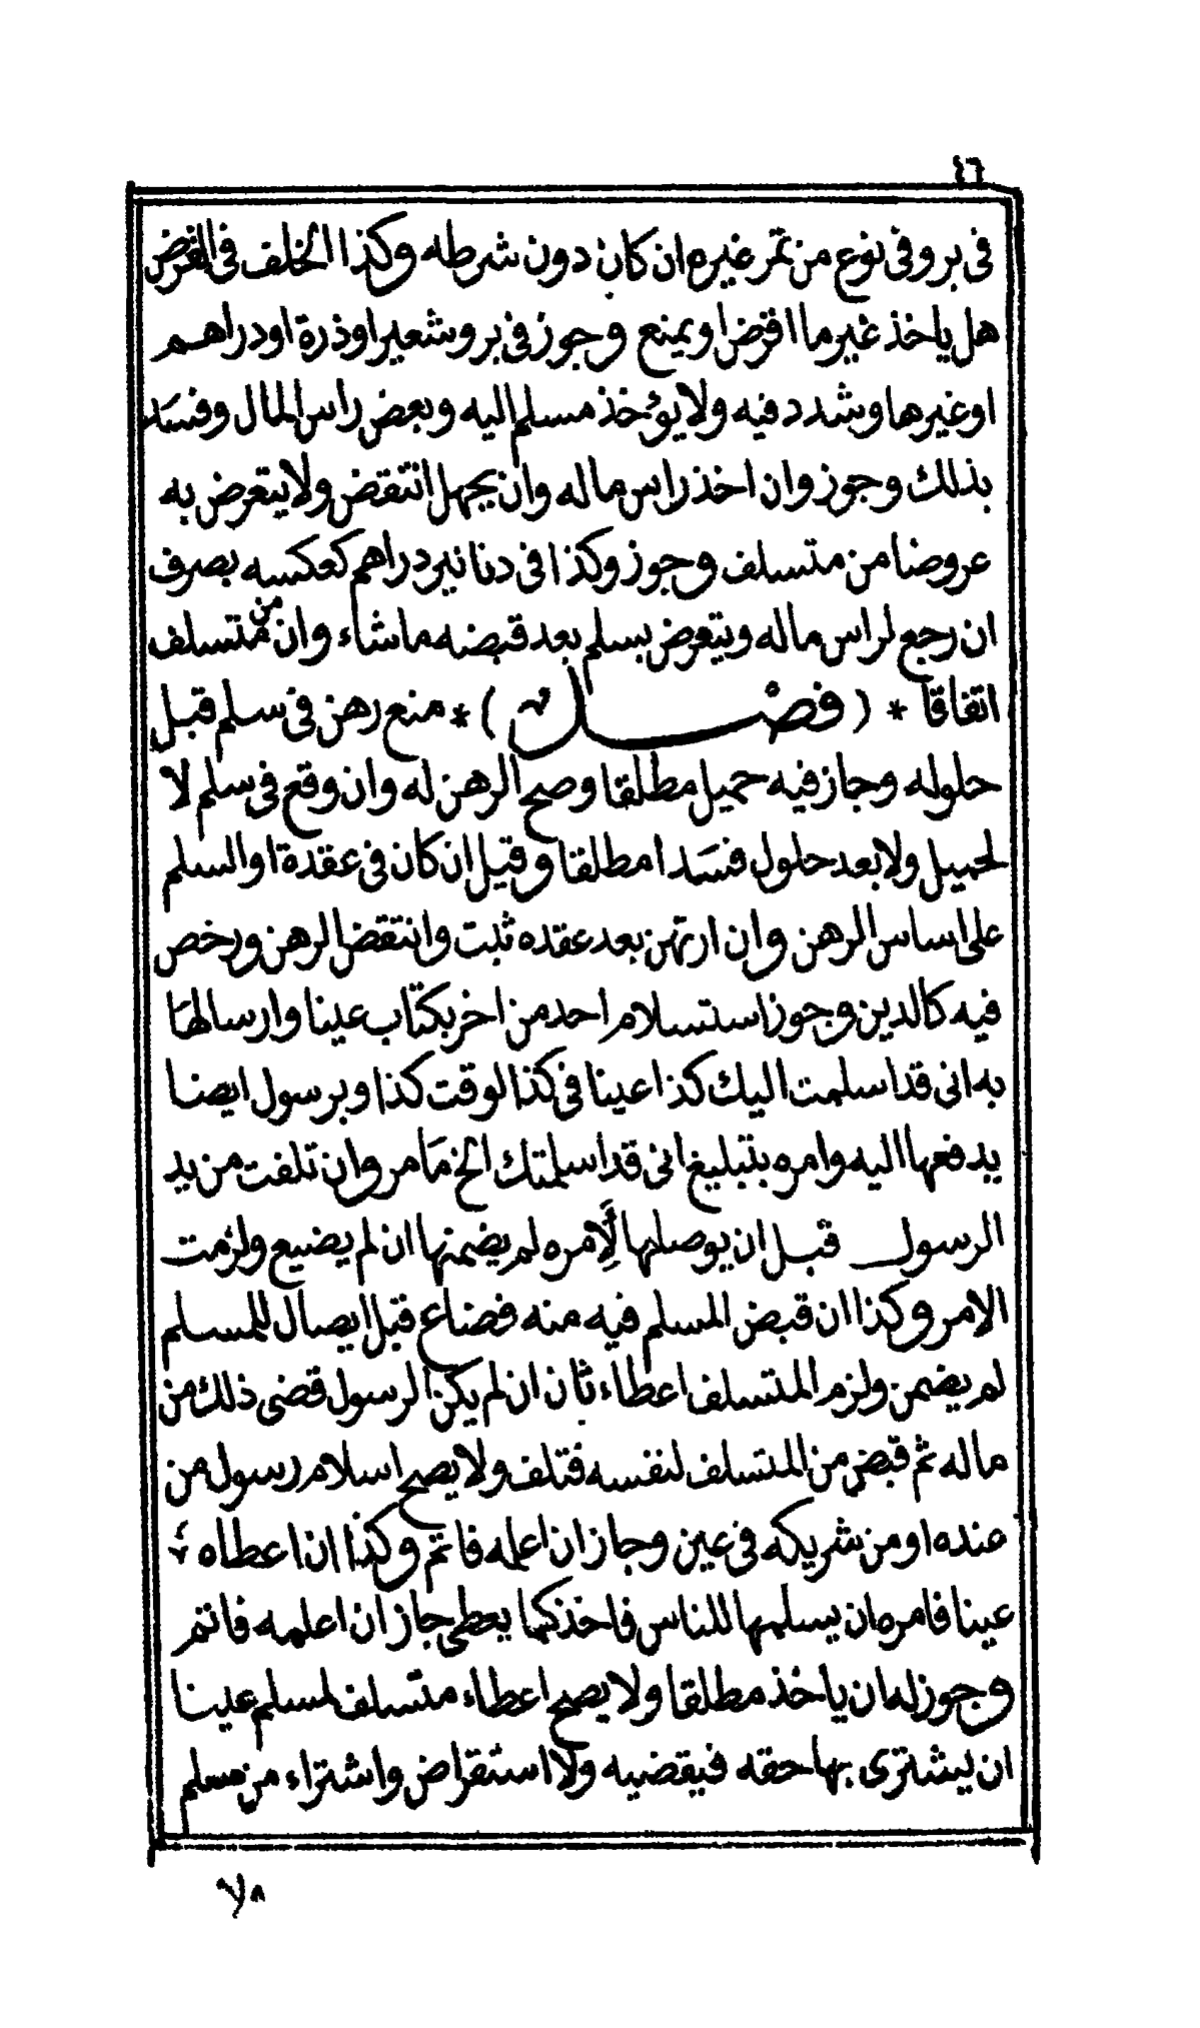 ٤٦
فى بر وفى نوع من تمر غيره ان كان دون شرطه وكذا الخلف فى القرض
هل ياخذ غير ما اقرض او يمنع وجوز فى بر وشعير او ذرة او دراهم
او غيرها وشدد فيه ولا يؤخذ مسلم اليه وبعض راس المال وفسد
بذلك وجوز وان اخذ راس ماله وان بجهل انتقض ولا يتعرض به
عروضا من متسلف وجوز وكذا فى دنانير دراهم كعكسه بصرف
ان رجع لراس ماله ويتعرض بسلم بعد قبضه ماشاء وان من متسلف
اتفاقا * ( فصل ) * منع رهن فى سلم قبل
حلوله وجاز فيه حميل مطلقا وصح الرهن له وان وقع فى سلم لا
لحميل ولا بعد حلول فسدا مطلقا وقيل ان كان فى عقدة او السلم
على اساس الرهن وان ارتهن بعد عقده ثبت وانتقض الرهن ورخص
فيه كالدين وجوز استسلام احد من اخر بكتاب عينا وارسالها
به انى قد اسلمت اليك كذا عينا فى كذا لوقت كذا وبرسول ايضا
يدفعها اليه وامره بتبليغ انى قد اسلمتك الخ مامر وان تلفت من يد
الرسول قبل ان يوصلها لآمره لم يضمنها ان لم يضيع ولزمت
الامر وكذا ان قبض المسلم فيه منه فضاع قبل ايصال للمسلم
لم يضمن ولزم المتسلف اعطاء ثان ان لم يكن الرسول قضى ذلك من
ماله ثم قبض من المتسلف لنفسه فتلف ولا يصح اسلام رسول من
عنده او من شريكه فى عين وجاز ان اعلمه فاتم وكذا ان اعطاه
عينا فامره ان يسلمها للناس فاخذ كما يعطى جاز ان اعلمه فاتم
وجوز له ان ياخذ مطلقا ولا يصح اعطاء متسلف لمسلم عينا
ان يشترى بها حقه فيقضيه ولا استقراض واشتراء من مسلم